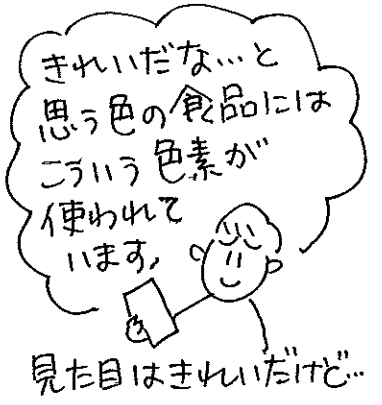 きれいだな…と
思う色の食品には
こういう色素が
使われて
います。
見た目はきれいだけど…